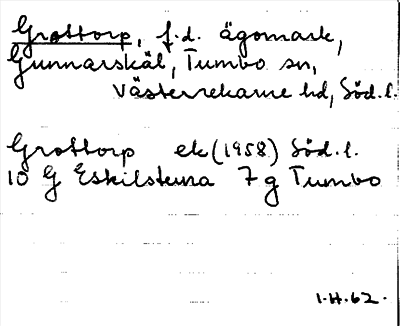 Grottorp, f.d. ägomark,
Gunnarskäl, Tumbo sn,
Västerrekarne hd, Söd.l.
Grottorp ek (1958) Söd.l.
10 G Eskilstuna 7 g Tumbo
I.H.62.